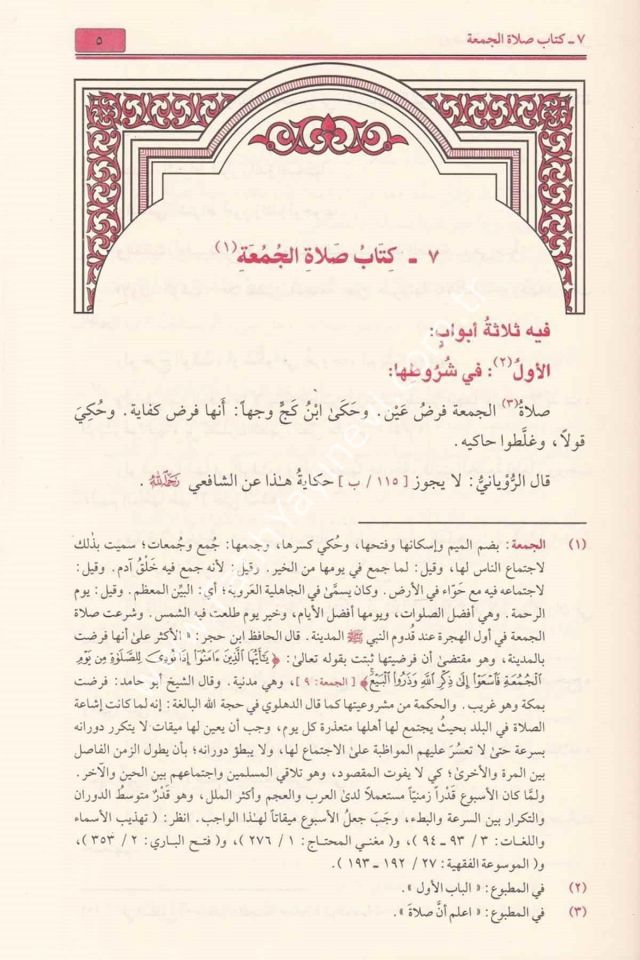 ٧ ـ كتاب صلاة الجمعة
٥
٧ ـ كِتَابُ صَلَاةِ الجُمُعَةِ(١)
فيه ثلاثةُ أبوابٍ:
الأولُ(٢): في شُرُوطها:
صلاةُ(٣) الجمعة فرضُ عَيْن. وحَكَىٰ ابْنُ كَجٍّ وجهاً: أنها فرض كفاية. وحُكِيَ
قولاً، وغلَّطوا حاكيه.
قال الرُّوْيانيُّ: لا يجوز [ ١١٥ / ب ] حكايةُ هـٰذا عن الشافعي رَحِمَهُ اللَّهُ.
(١) الجمعة: بضم الميم وإسكانها وفتحها، وحُكي كسرها، وجمعها: جُمع وجُمعات؛ سميت بذٰلك
لاجتماع الناس لها، وقيل: لما جمع في يومها من الخير. وقيل: لأنه جمع فيه خَلْقُ آدم. وقيل:
لاجتماعه فيه مع حَوّاء في الأرض. وكان يسمَّىٰ في الجاهلية العَروبة؛ أي: البيِّن المعظم. وقيل: يوم
الرحمة. وهي أفضل الصلوات، ويومها أفضل الأيام، وخير يوم طلعت فيه الشمس. وشرعت صلاة
الجمعة في أول الهجرة عند قُدوم النبي ﷺ المدينة. قال الحافظ ابن حجر: «الأكثر علىٰ أنها فرضت
بالمدينة، وهو مقتضىٰ أن فرضيتها ثبتت بقوله تعالىٰ: ﴿يَٰٓأَيُّهَا ٱلَّذِينَ ءَامَنُوٓا۟ إِذَا نُودِىَ لِلصَّلَوٰةِ مِن يَوْمِ
ٱلْجُمُعَةِ فَٱسْعَوْا۟ إِلَىٰ ذِكْرِ ٱللَّهِ وَذَرُوا۟ ٱلْبَيْعَ﴾ [الجمعة: ٩]، وهي مدنية. وقال الشيخ أبو حامد: فرضت
بمكة وهو غريب. والحكمة من مشروعيتها كما قال الدهلوي في حجة الله البالغة: إنه لما كانت إشاعة
الصلاة في البلد بحيثُ يجتمع لها أهلها متعذرة كل يوم، وجب أن يعين لها ميقات لا يتكرر دورانه
بسرعة حتىٰ لا تعسُر عليهم المواظبة علىٰ الاجتماع لها، ولا يبطؤ دورانه؛ بأن يطول الزمن الفاصل
بين المرة والأخرىٰ؛ كي لا يفوت المقصود، وهو تلاقي المسلمين واجتماعهم بين الحين والآخر.
ولمَّا كان الأسبوع قَدْراً زمنيّاً مستعملاً لدىٰ العرب والعجم وأكثر الملل، وهو قَدْرٌ متوسطُ الدوران
والتكرار بين السرعة والبطء، وجَبَ جعلُ الأسبوع ميقاتاً لهـٰذا الواجب. انظر: ( تهذيب الأسماء
واللغات: ٣ / ٩٣ ـ ٩٤ )، و( مغني المحتاج: ١ / ٢٧٦ )، و( فتح الباري: ٢ / ٣٥٣ )،
و( الموسوعة الفقهية: ٢٧ / ١٩٢ ـ ١٩٣ ).
(٢) في المطبوع: « الباب الأول ».
(٣) في المطبوع: « اعلم أنَّ صلاة ».